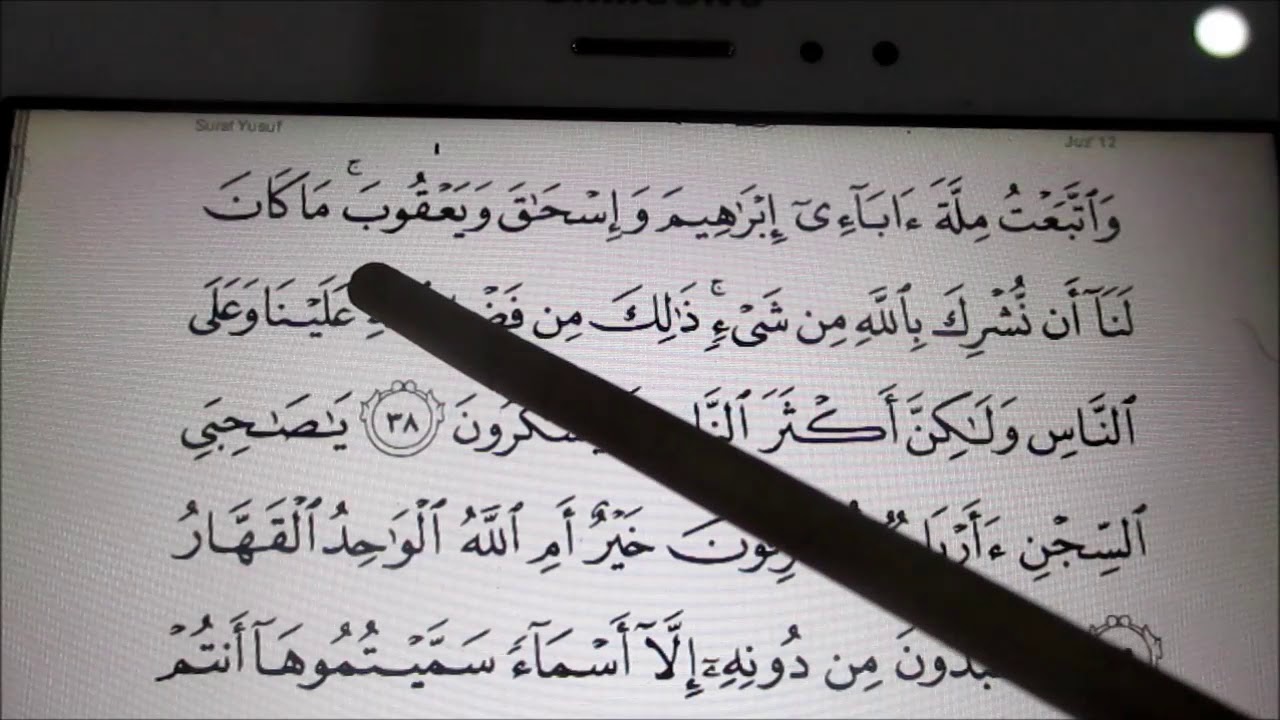 Surat Yusuf
Juz' 12
وَٱتَّبَعْتُ مِلَّةَ ءَابَآءِىٓ إِبْرَٰهِيمَ وَإِسْحَٰقَ وَيَعْقُوبَ ۚ مَا كَانَ
لَنَآ أَن نُّشْرِكَ بِٱللَّهِ مِن شَىْءٍ ۚ ذَٰلِكَ مِن عَلَيْنَا وَعَلَى
ٱلنَّاسِ وَلَٰكِنَّ أَكْثَرَ ٱلنَّاسِ يَشْكُرُونَ ٣٨ يَٰصَٰحِبَىِ
ٱلسِّجْنِ خَيْرٌ أَمِ ٱللَّهُ ٱلْوَٰحِدُ ٱلْقَهَّارُ
مِن دُونِهِۦٓ إِلَّآ أَسْمَآءً سَمَّيْتُمُوهَآ أَنتُمْ